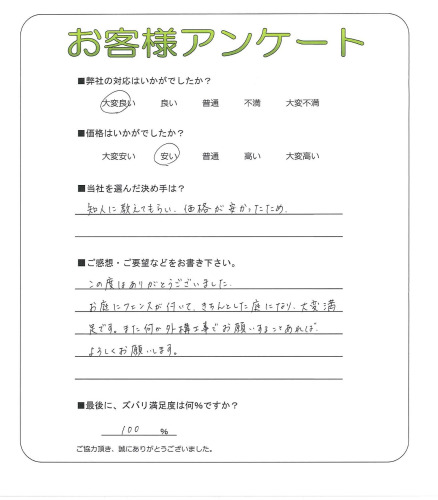 お客様アンケート
■弊社の対応はいかがでしたか？
大変良い 良い 普通 不満 大変不満
■価格はいかがでしたか？
大変安い 安い 普通 高い 大変高い
■当社を選んだ決め手は？
知人に教えてもらい、価格が安かったため。
■ご感想・ご要望などをお書き下さい。
この度はありがとうございました。
お庭にフェンスが付いて、きちんとした庭になり、大変満
足です。また何か外構工事でお願いすることあれば、
よろしくお願いします。
■最後に、ズバリ満足度は何％ですか？
100 ％
ご協力頂き、誠にありがとうございました。